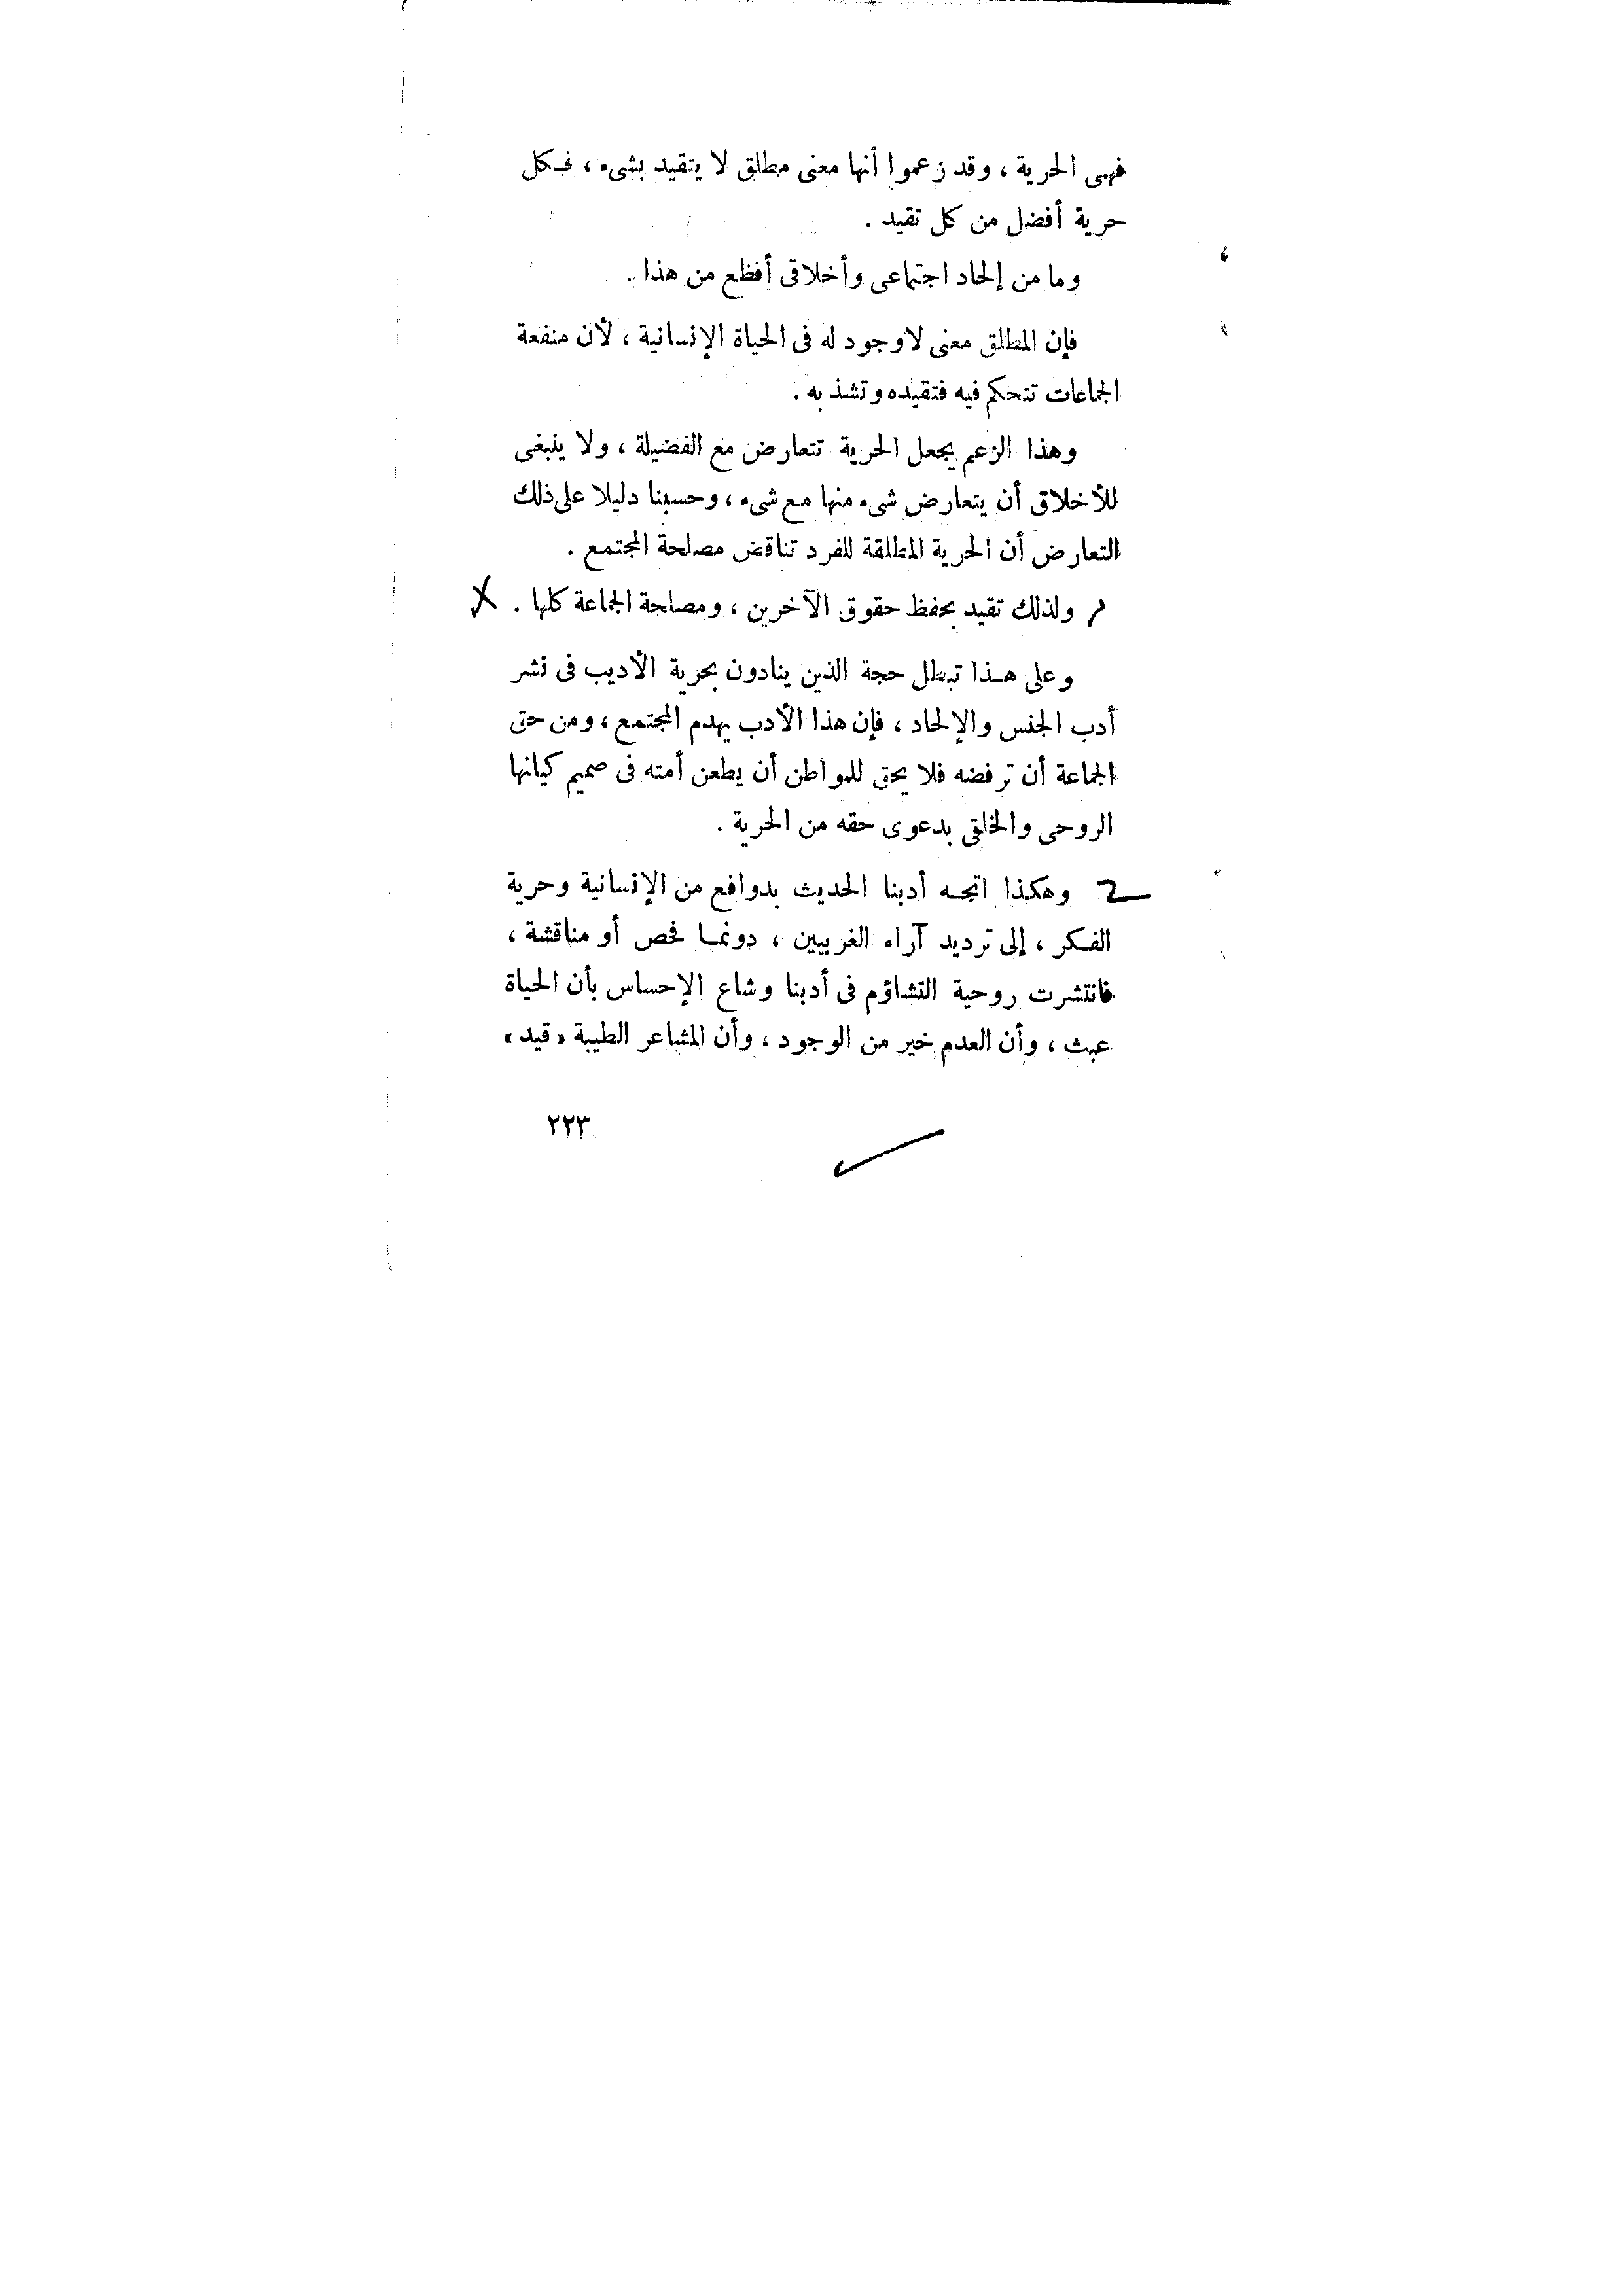 فهى الحرية ، وقد زعموا أنها معنى مطلق لا يتقيد بشىء ، فكل
حرية أفضل من كل تقيد .
وما من إلحاد اجتماعى وأخلاقى أفظع من هذا .
فإن المطلق معنى لا وجود له فى الحياة الإنسانية ، لأن منفعة
الجماعات تتحكم فيه فتقيده وتشذ به .
وهذا الزعم يجعل الحرية تتعارض مع الفضيلة ، ولا ينبغى
للأخلاق أن يتعارض شىء منها مع شىء ، وحسبنا دليلا على ذلك
التعارض أن الحرية المطلقة للفرد تناقض مصلحة المجتمع .
ولذلك تقيد بحفظ حقوق الآخرين ، ومصلحة الجماعة كلها .
وعلى هذا تبطل حجة الذين ينادون بحرية الأديب فى نشر
أدب الجنس والإلحاد ، فإن هذا الأدب يهدم المجتمع ، ومن حق
الجماعة أن ترفضه فلا يحق للمواطن أن يطعن أمته فى صميم كيانها
الروحى والخلقى بدعوى حقه من الحرية .
وهكذا اتجه أدبنا الحديث بدوافع من الإنسانية وحرية
الفكر ، إلى ترديد آراء الغربيين ، دونما فحص أو مناقشة ،
فانتشرت روحية التشاؤم فى أدبنا وشاع الإحساس بأن الحياة
عبث ، وأن العدم خير من الوجود ، وأن المشاعر الطيبة «قيد»
٢٢٣